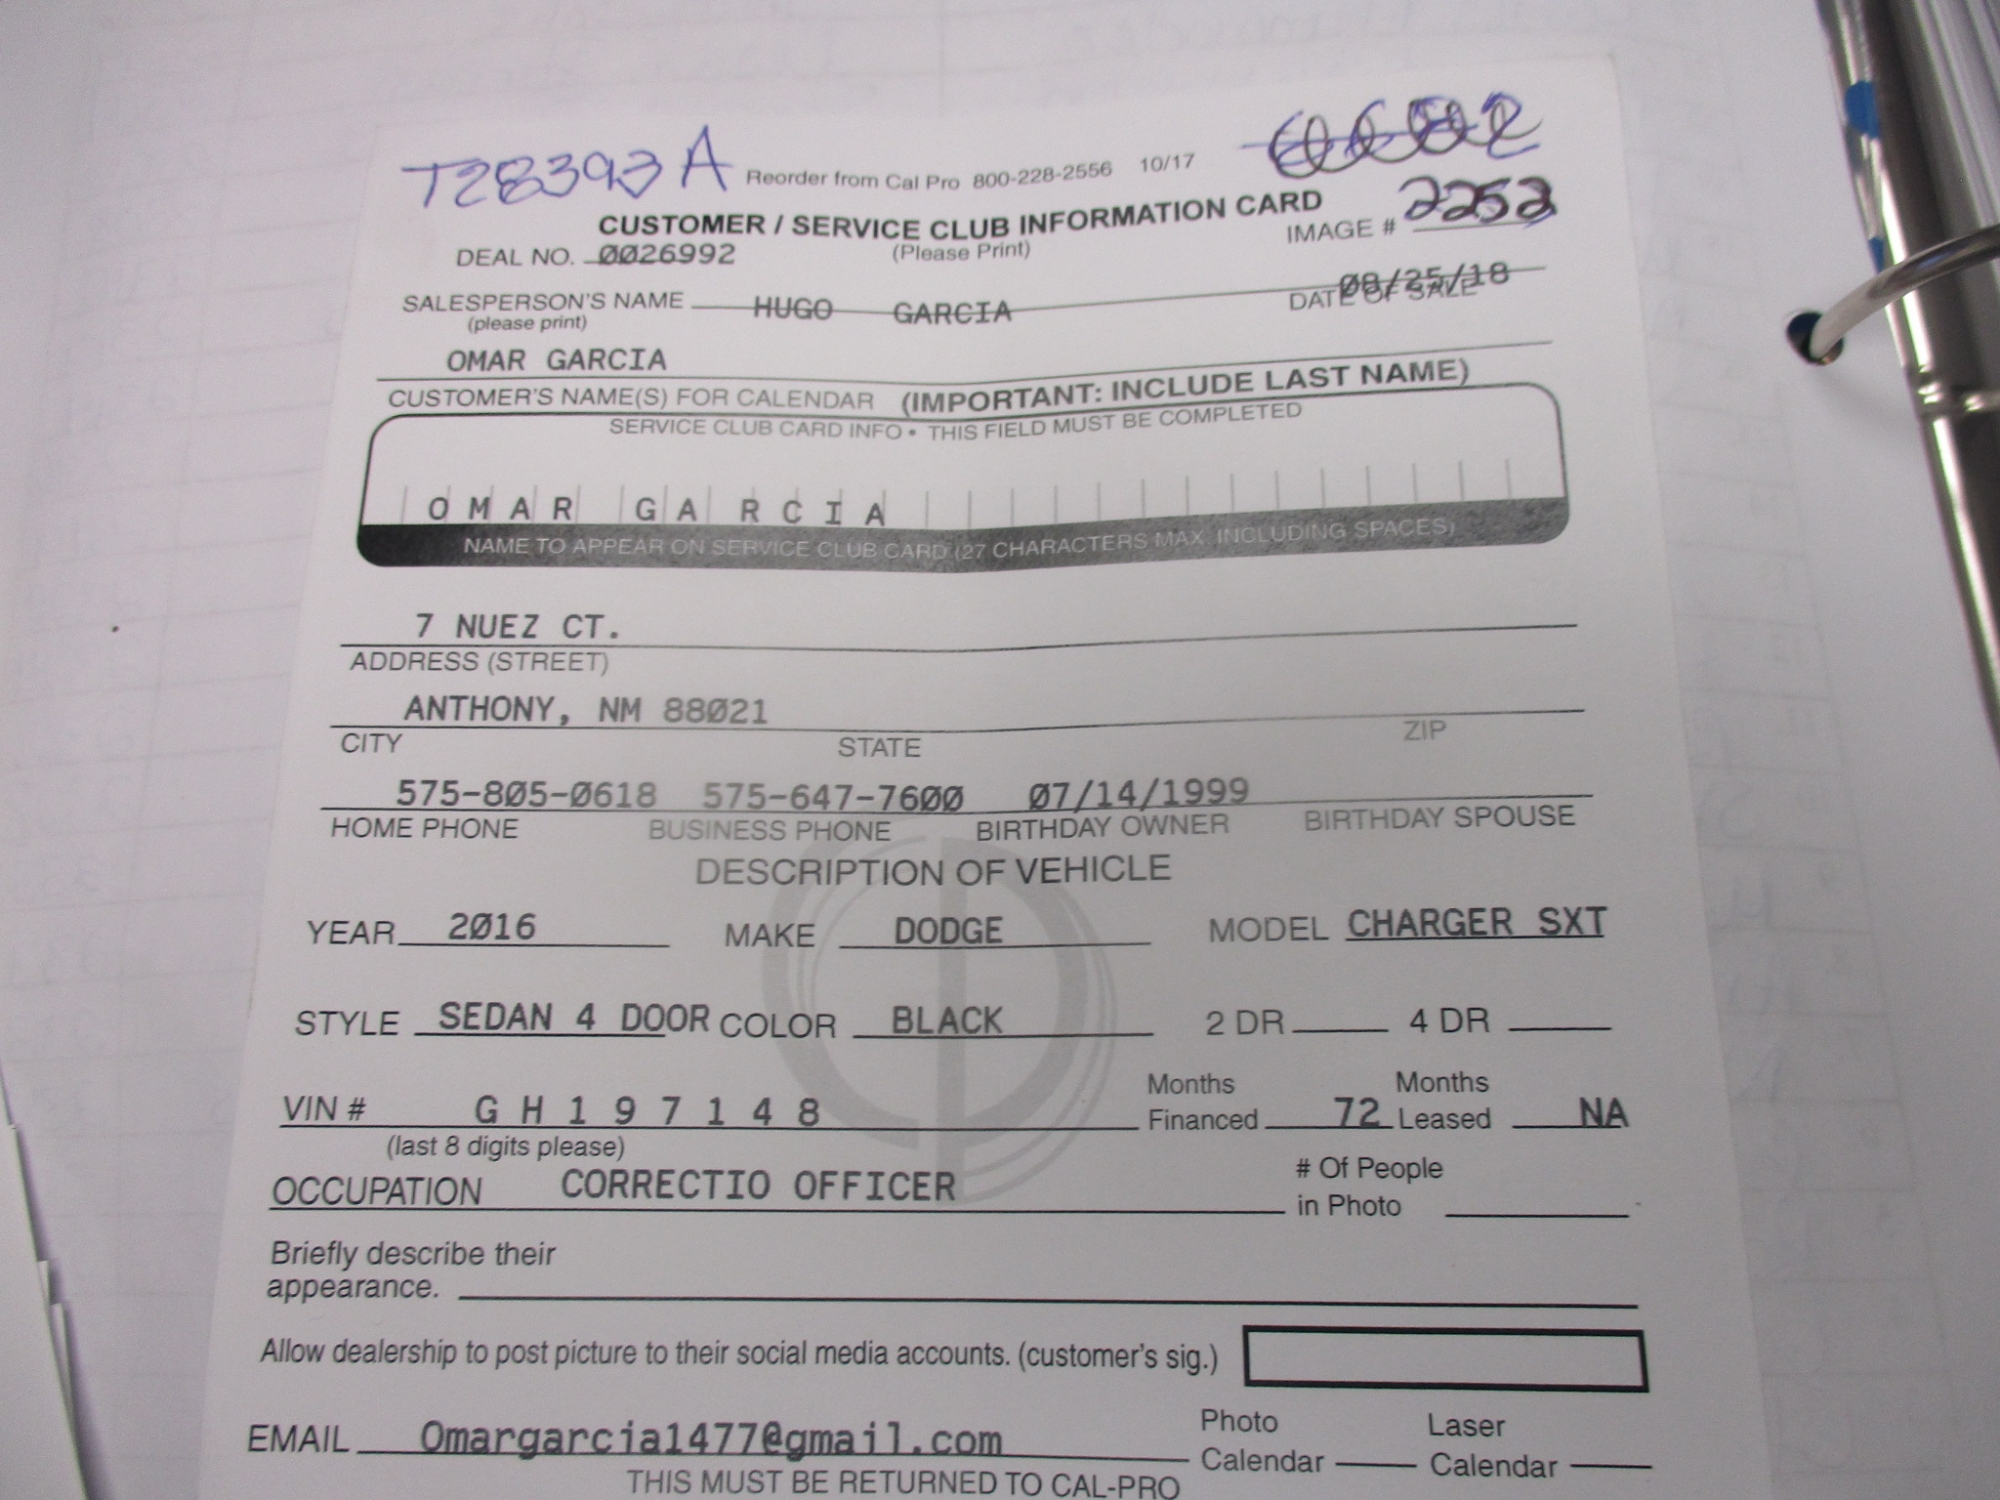 T28393A Reorder from Cal Pro 800-228-2556 10/17
CUSTOMER / SERVICE CLUB INFORMATION CARD
IMAGE # 2252
DEAL NO. 0026992 (Please Print)
SALESPERSON'S NAME HUGO GARCIA DATE OF SALE 08/25/18
(please print)
OMAR GARCIA
CUSTOMER'S NAME(S) FOR CALENDAR (IMPORTANT: INCLUDE LAST NAME)
SERVICE CLUB CARD INFO • THIS FIELD MUST BE COMPLETED
OMAR GARCIA
NAME TO APPEAR ON SERVICE CLUB CARD (27 CHARACTERS MAX. INCLUDING SPACES)
7 NUEZ CT.
ADDRESS (STREET)
ANTHONY, NM 88021
CITY STATE ZIP
575-805-0618 575-647-7600 07/14/1999
HOME PHONE BUSINESS PHONE BIRTHDAY OWNER BIRTHDAY SPOUSE
DESCRIPTION OF VEHICLE
YEAR 2016 MAKE DODGE MODEL CHARGER SXT
STYLE SEDAN 4 DOOR COLOR BLACK 2 DR 4 DR
VIN # GH197148 Months Financed 72 Months Leased NA
(last 8 digits please)
OCCUPATION CORRECTIO OFFICER # Of People in Photo
Briefly describe their
appearance.
Allow dealership to post picture to their social media accounts. (customer's sig.)
EMAIL Omargarcia1477@gmail.com Photo Calendar Laser Calendar
THIS MUST BE RETURNED TO CAL-PRO